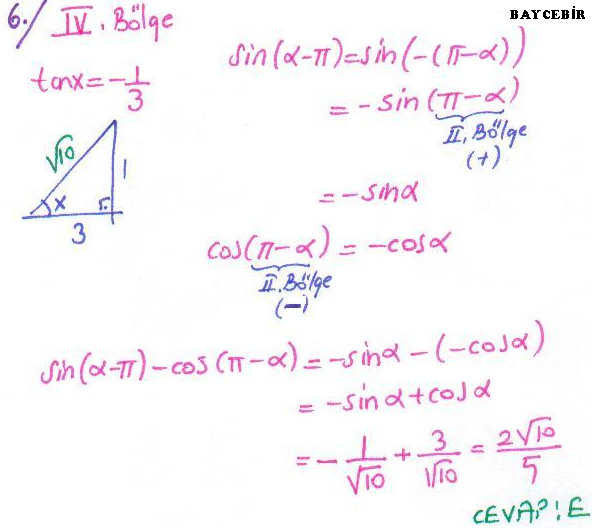 BAYCEBİR
6./ IV. Bölge
tanx = -1/3
√10
1
x
3
sin(α-π) = sin(-(π-α))
= -sin(π-α)
II. Bölge
(+)
= -sinα
cos(π-α) = -cosα
II. Bölge
(-)
sin(α-π) - cos(π-α) = -sinα - (-cosα)
= -sinα + cosα
= -1/√10 + 3/√10 = 2√10/5
CEVAP: E